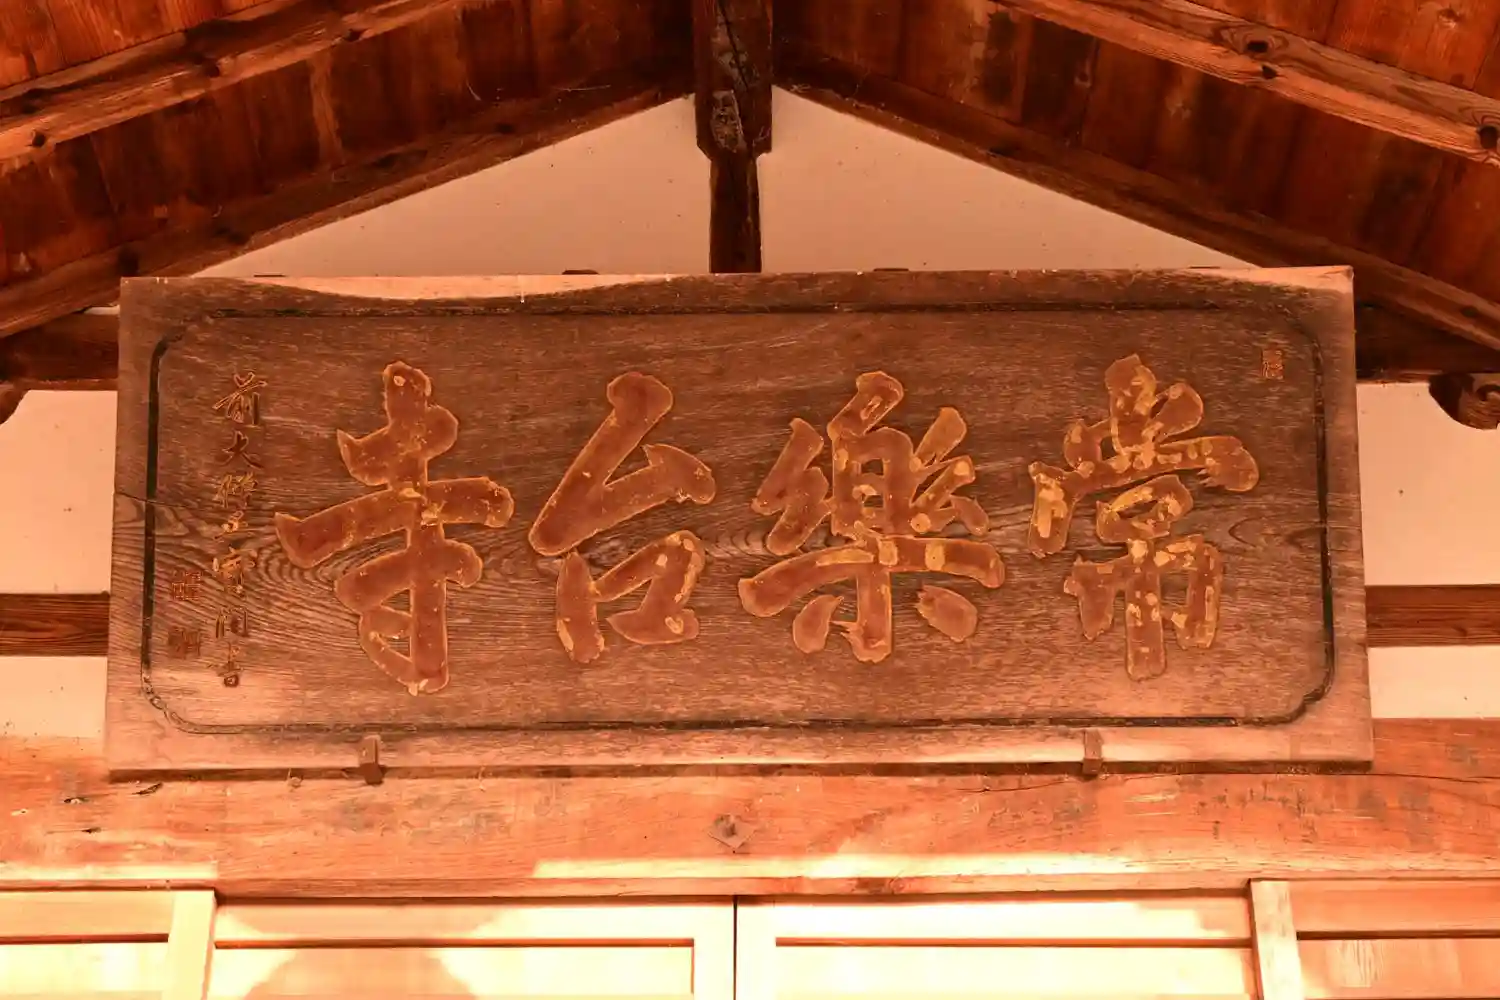 常樂台寺
前大僧正寛潤書